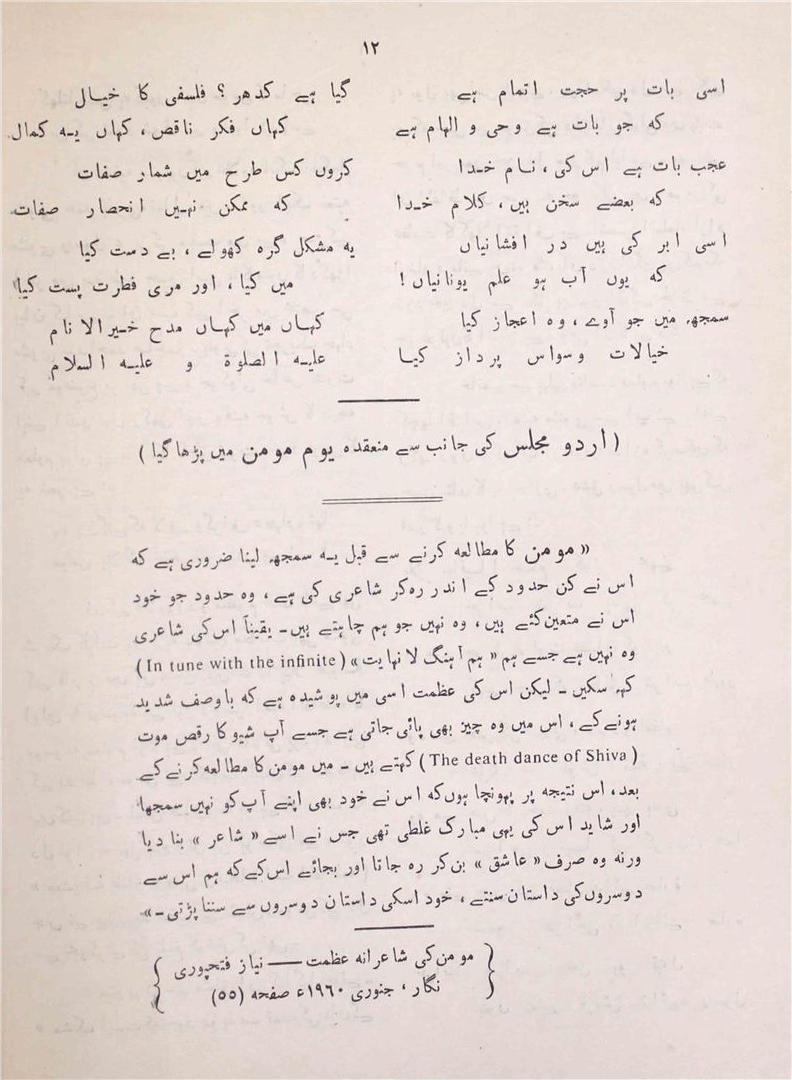 ۱۲
اسی بات پر حجت اتمام ہے
گیا ہے کدھر؟ فلسفی کا خیال
کہ جو بات ہے وحی و الہام ہے
کہاں فکر ناقص، کہاں یہ کمال
عجب بات ہے اس کی، نام خدا
کروں کس طرح میں شمار صفات
کہ بعضے سخن ہیں، کلام خدا
کہ ممکن نہیں انحصار صفات
اسی ابر کی ہیں در افشانیاں
یہ مشکل گرہ کھولے، بے دست کیا
کہ یوں آب ہو علم یونانیاں!
میں کیا، اور مری فطرت پست کیا!
سمجھ میں جو آوے، وہ اعجاز کیا
کہاں میں کہاں مدح خیر الانام
خیالات وسواس پرداز کیا
علیہ الصلوۃ و علیہ السلام
(اردو مجلس کی جانب سے منعقدہ یوم مومن میں پڑھا گیا)
« مومن کا مطالعہ کرنے سے قبل یہ سمجھ لینا ضروری ہے کہ
اس نے کن حدود کے اندر رہ کر شاعری کی ہے، وہ حدود جو خود
اس نے متعین کئے ہیں، وہ نہیں جو ہم چاہتے ہیں۔ یقیناً اس کی شاعری
وہ نہیں ہے جسے ہم « ہم آہنگ لا نہایت » (In tune with the infinite)
کہہ سکیں۔ لیکن اس کی عظمت اسی میں پوشیدہ ہے کہ باوصف شدید
ہونے کے، اس میں وہ چیز بھی پائی جاتی ہے جسے آپ شیو کا رقص موت
(The death dance of Shiva) کہتے ہیں۔ میں مومن کا مطالعہ کرنے کے
بعد، اس نتیجہ پر پہونچا ہوں کہ اس نے خود بھی اپنے آپ کو نہیں سمجھا
اور شاید اس کی یہی مبارک غلطی تھی جس نے اسے « شاعر » بنا دیا
ورنہ وہ صرف « عاشق » بن کر رہ جاتا اور بجائے اس کے کہ ہم اس سے
دوسروں کی داستان سنتے، خود اسکی داستان دوسروں سے سننا پڑتی۔»
{ مومن کی شاعرانہ عظمت — نیاز فتحپوری
نگار، جنوری ۱۹۶۰ء صفحہ (۵۵) }